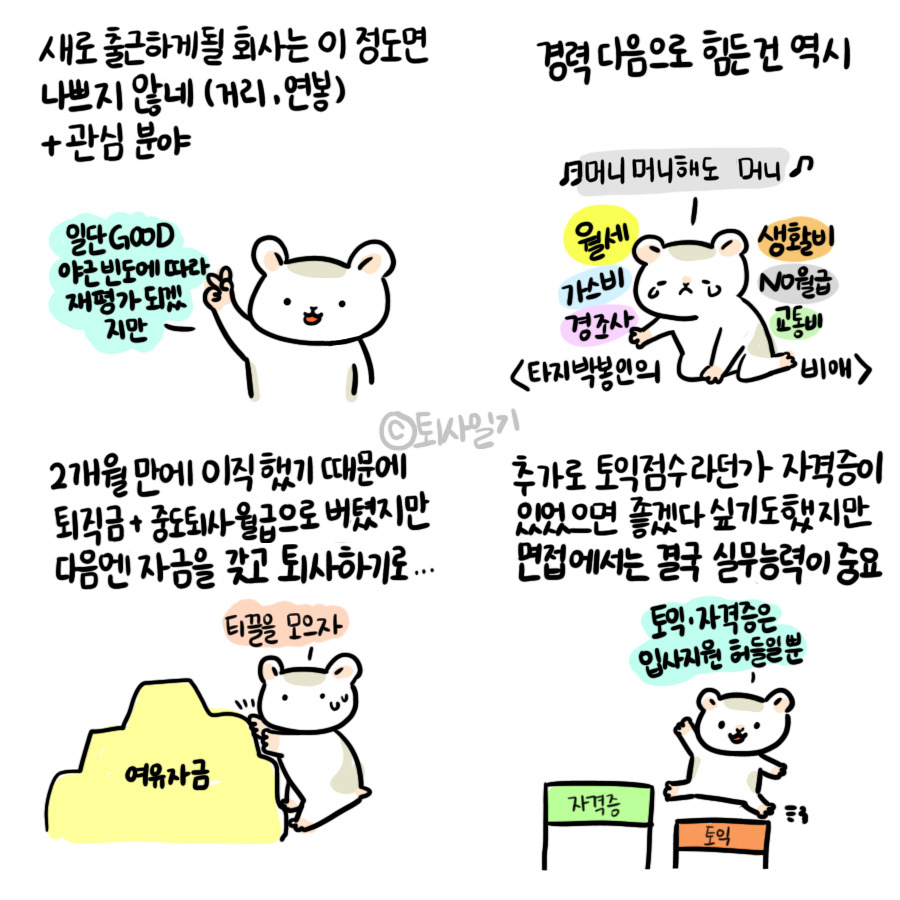 새로 출근하게될 회사는 이 정도면
나쁘지 않네 (거리, 연봉)
+ 관심 분야
일단 GOOD
야근 빈도에 따라
재평가 되겠
지만
경력 다음으로 힘든건 역시
♬머니 머니해도 머니♪
월세
생활비
가스비
NO월급
경조사
교통비
<타지박봉인의 비애>
©퇴사일기
2개월 만에 이직 했기 때문에
퇴직금 + 중도퇴사 월급으로 버텼지만
다음엔 자금을 갖고 퇴사하기로...
티끌을 모으자
여유자금
추가로 토익점수라던가 자격증이
있었으면 좋겠다 싶기도했지만
면접에서는 결국 실무능력이 중요
토익·자격증은
입사지원 허들일뿐
자격증
토익